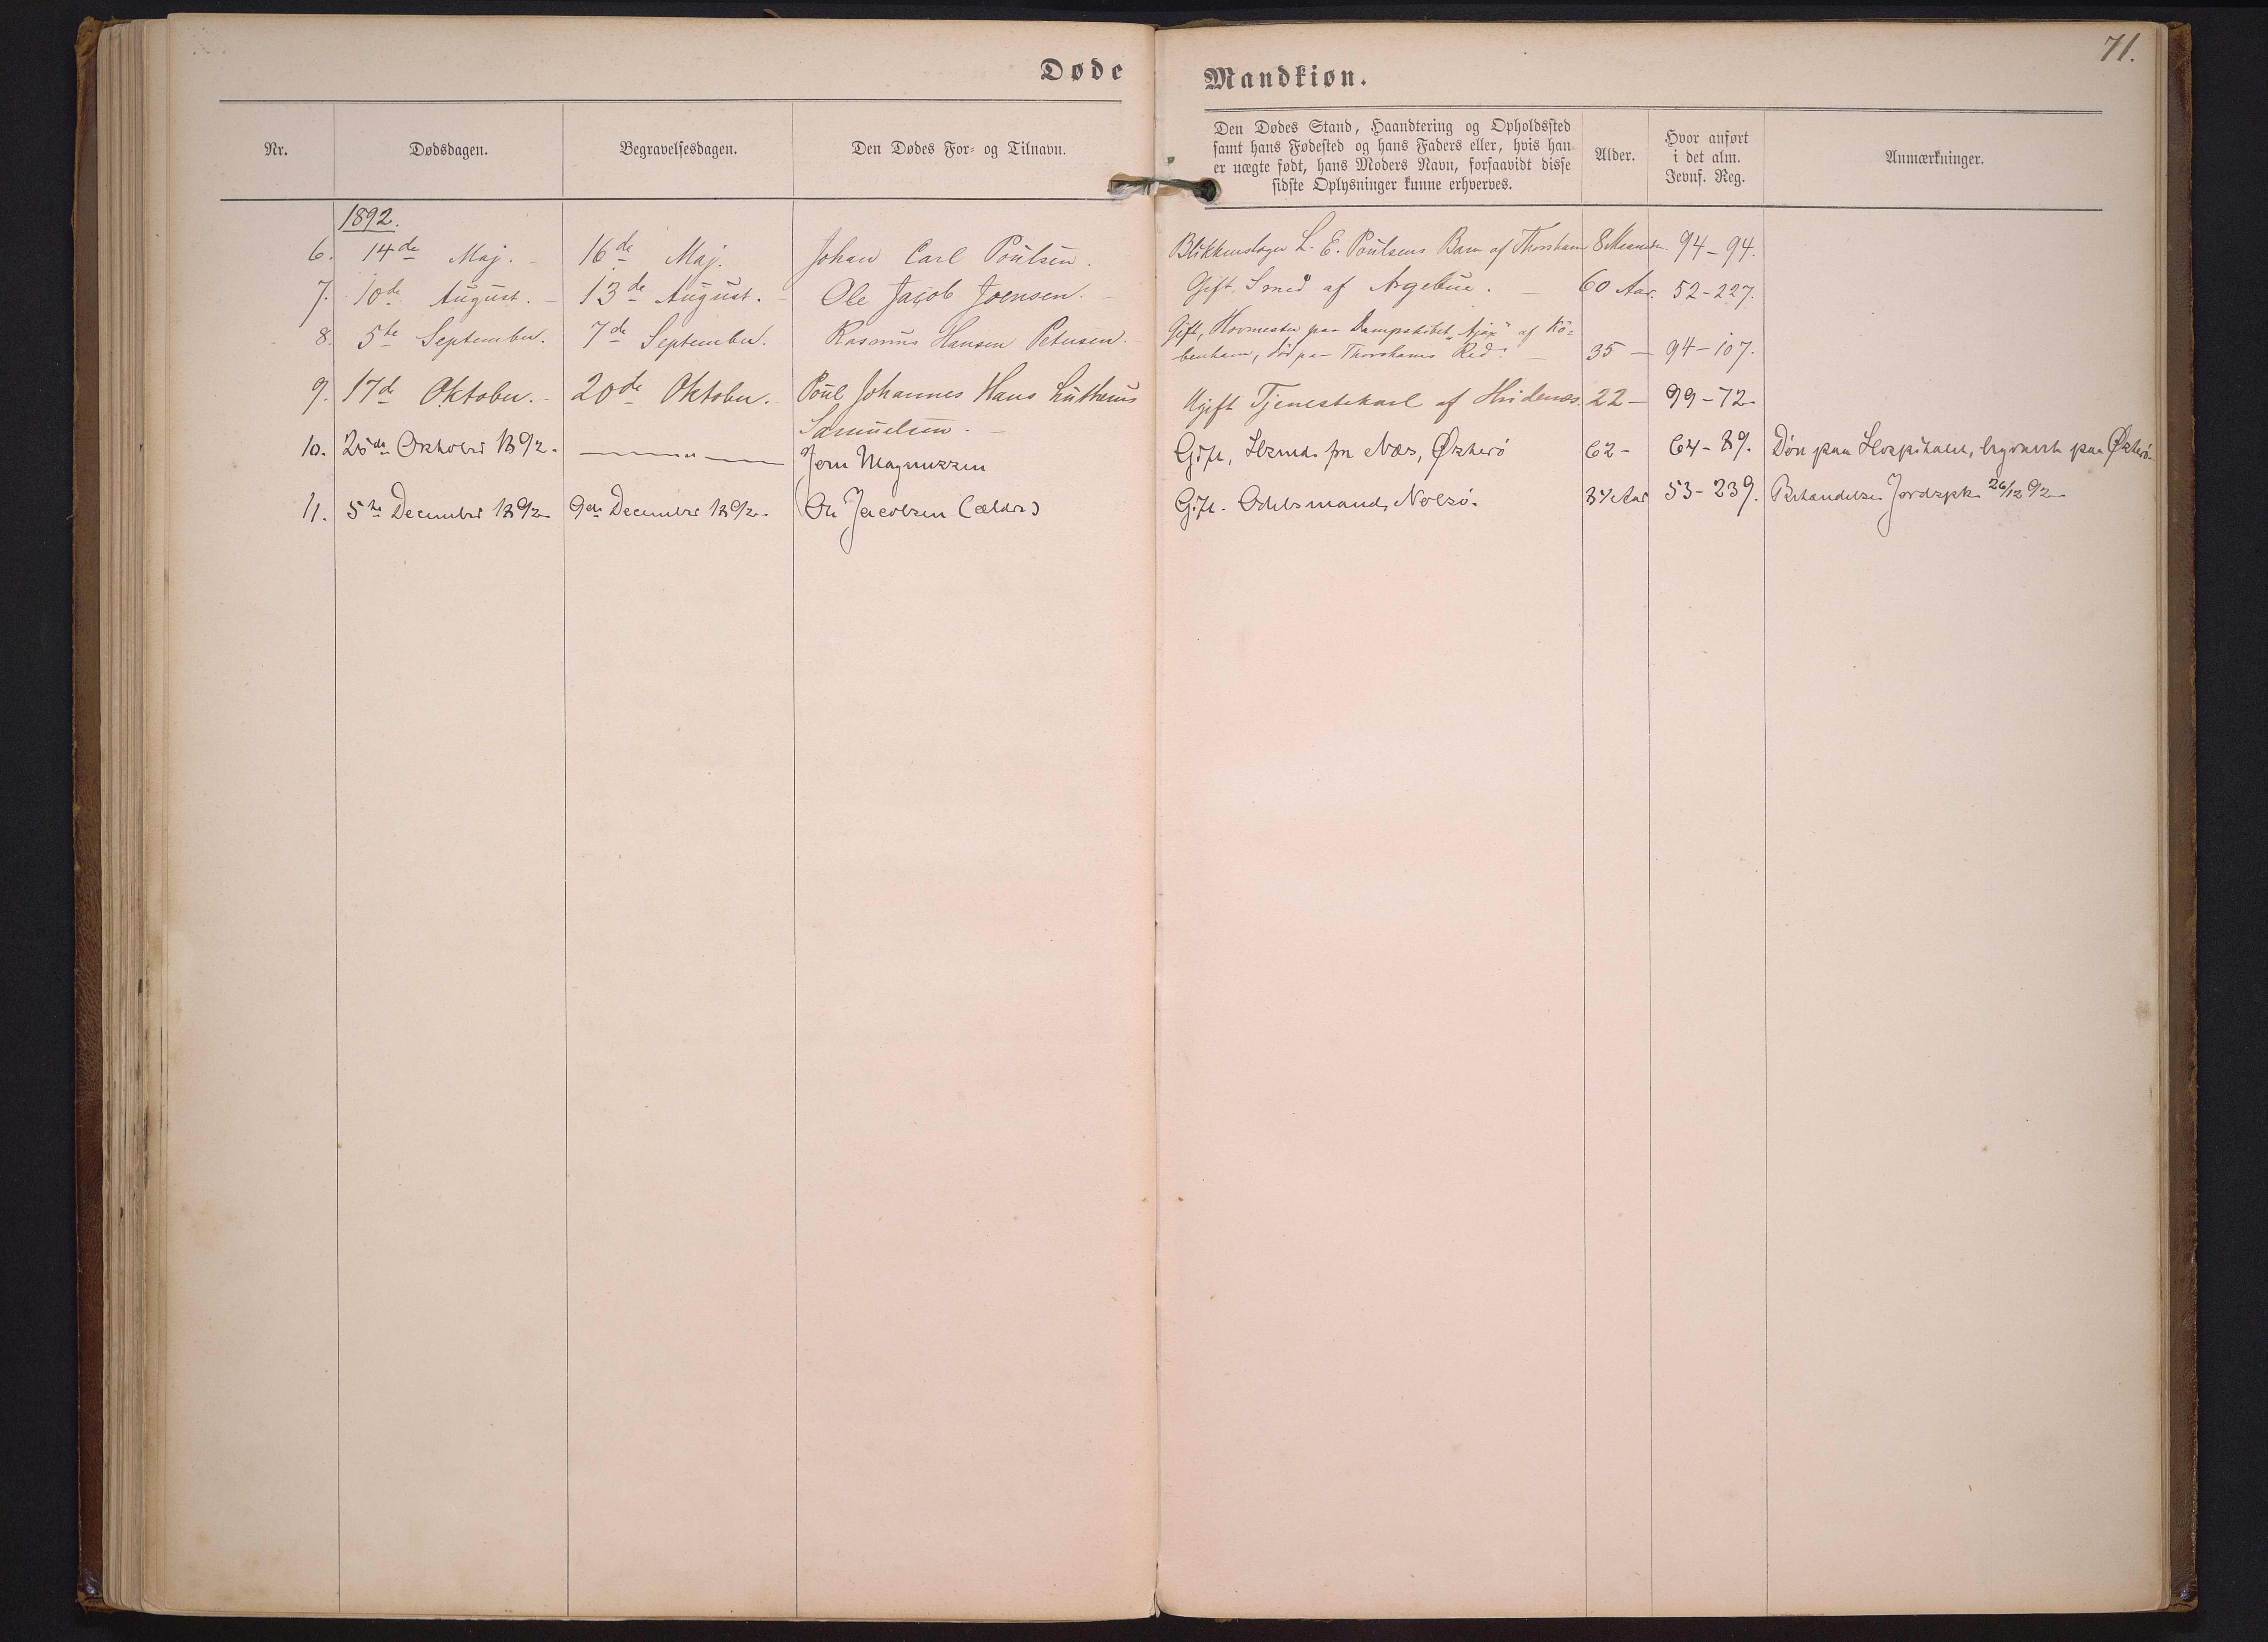 71.
Døde Mandkiøn.
Nr. Dødsdagen. Begravelsesdagen. Den Dødes For- og Tilnavn.
Den Dødes Stand, Haandtering og Opholdssted
samt hans Fødested og hans Faders eller, hvis han
er uægte født, hans Moders Navn, forsaavidt disse
sidste Oplysninger kunne erhverves.
Alder.
Hvor anført
i det alm.
Jevnf. Reg.
Anmærkninger.
1892.
6. 14de Maj. 16de Maj. Johan Carl Poulsen. Blikkenslager L. E. Poulsens Barn af Thorshavn 8 Maaneder. 94-94.
7. 10de August. 13de August. Ole Jacob Joensen. Gift, Smed af Argebue. 60 Aar. 52-227.
8. 5te September. 7de September. Rasmus Hansen Petersen. Gift, Hovmester paa Dampskibet "Ajax" af Kö-
benhavn, död paa Thorshavns Red. 35 - 94-107.
9. 17de Oktober. 20de Oktober. Poul Johannes Hans Lutherus Ugift Tjenestekarl af Hvidenæs. 22 - 99-72
Samuelsen.
10. Oktober 1892. Joen Magnussen Gift, fra Næs, Østerö 62 - 64-89. Död paa Hospitalet, begravet paa Østerö
11. 5te December 1892 9de December 1892. Ole Jacobsen (ældre) Gift. Odelsmand, Nolsö. Aar 53-239. Jordspk. 26/12 92